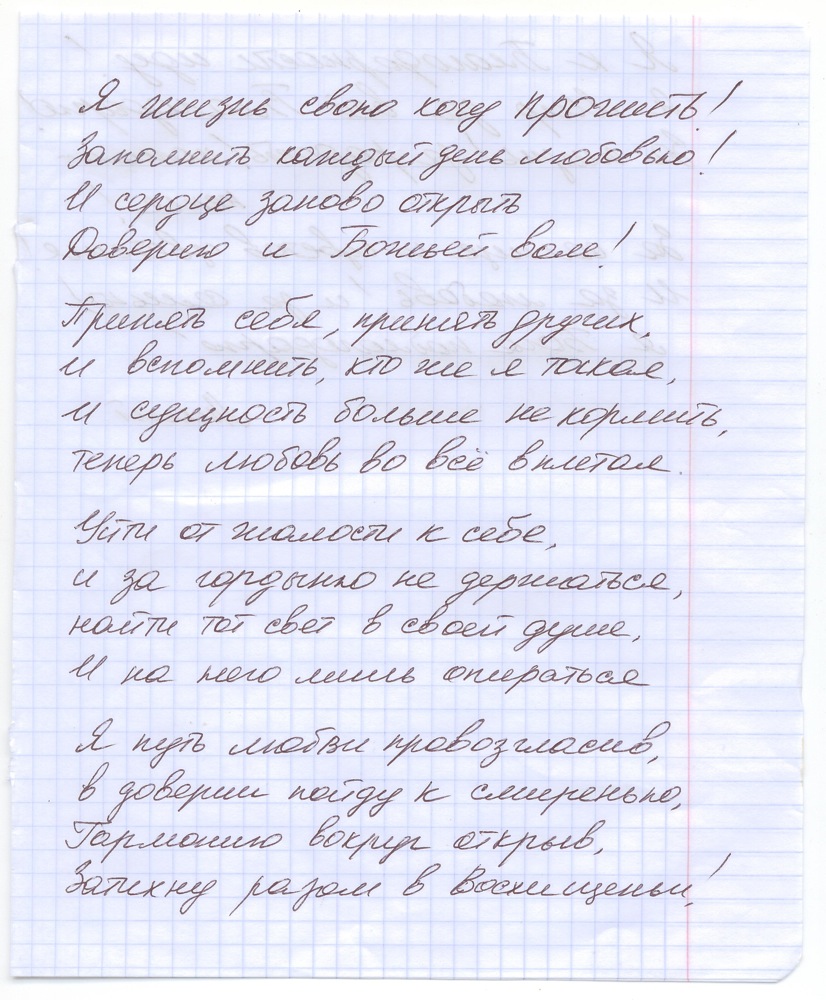 Я жизнь свою хочу прожить!
Заполнить каждый день любовью!
И сердце заново открыть
Доверию и Божьей воле!
Принять себя, принять других,
и вспомнить, кто же я такая,
и сущность больше не кормить,
теперь любовь во всё вплетая.
Уйти от жалости к себе,
и за гордыню не держаться,
найти тот свет в своей душе,
И на него лишь опираться
Я путь любви провозгласив,
в доверии пойду к смиренью,
Гармонию вокруг открыв,
Затихну разом в Восхищеньи!